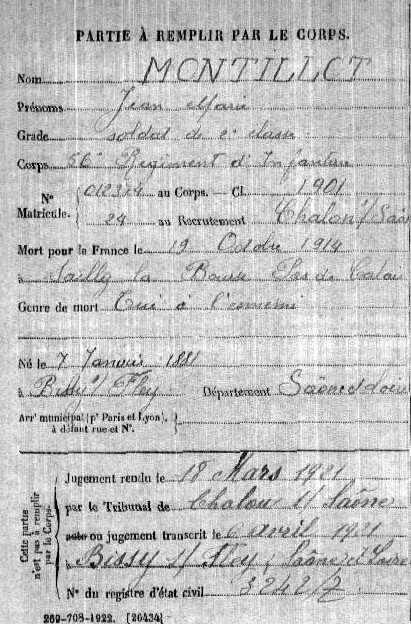 PARTIE À REMPLIR PAR LE CORPS.
Nom MONTILLOT
Prénoms Jean Marie
Grade soldat de 2e classe
Corps 56e Regiment d'Infanterie
Nº Matricule. 012314 au Corps. — Cl. 1901
24 au Recrutement Chalon s/ Saône
Mort pour la France le 19 Octobre 1914
à Sailly la Bourse Pas de Calais
Genre de mort Tué à l'ennemi
Né le 7 Janvier 1881
à Bissy s/ Fley Département Saône et Loire
Arrt municipal (pr Paris et Lyon), à défaut rue et Nº.
Cette partie n'est pas à remplir par le Corps.
Jugement rendu le 18 Mars 1921
par le Tribunal de Chalon s/ Saône
acte ou jugement transcrit le 6 avril 1921
à Bissy s/ Fley, Saône et Loire
Nº du registre d'état civil
269-708-1922. [26434]